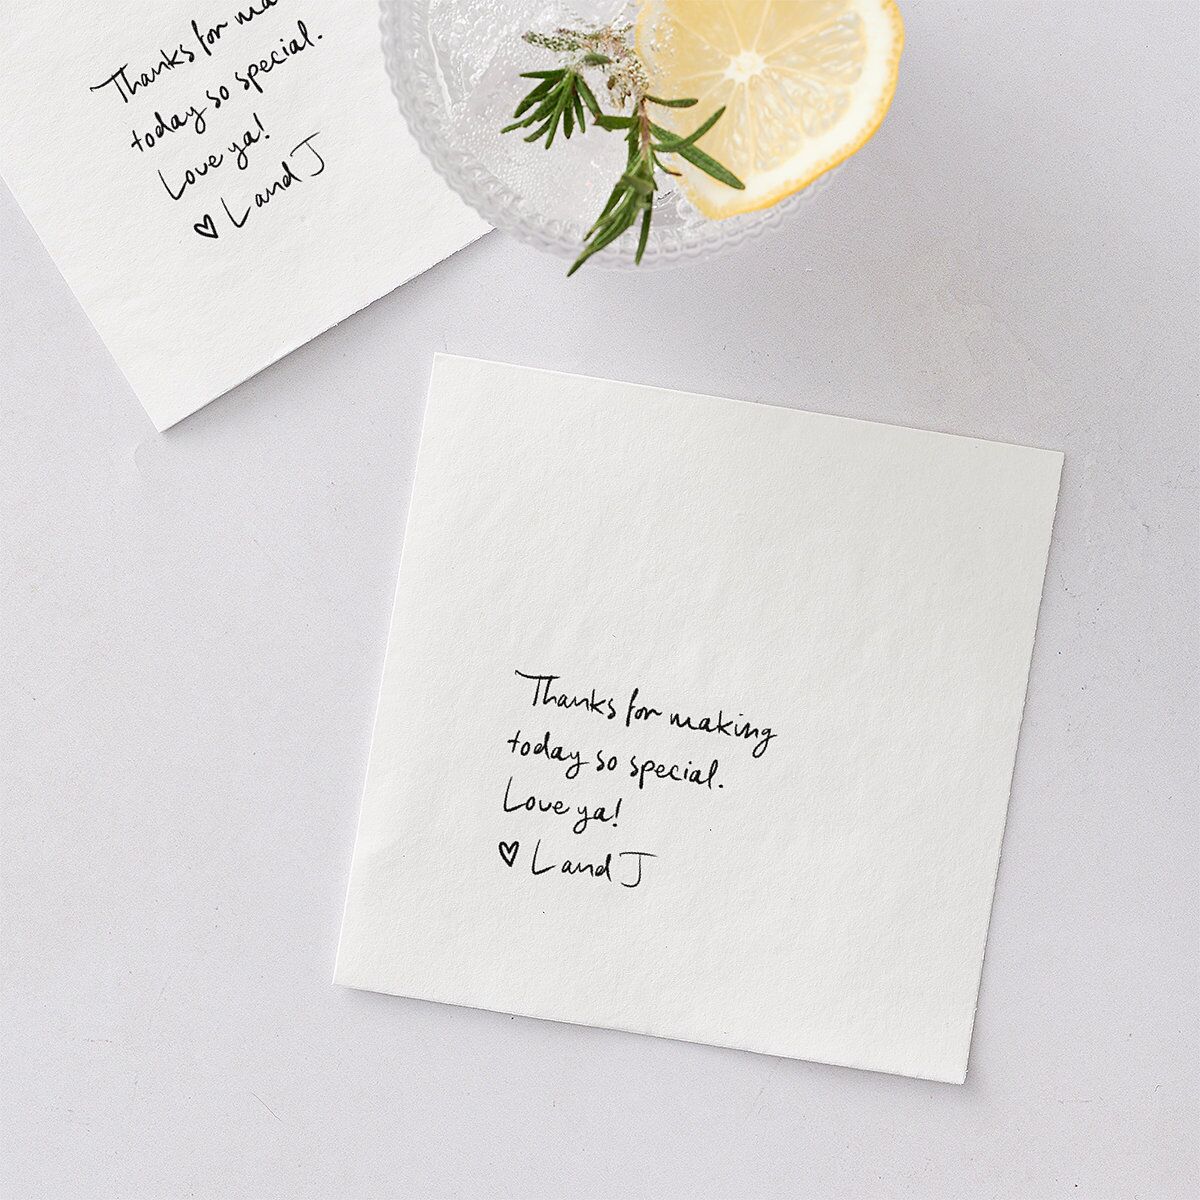 Thanks for ma
today so special.
Love ya!
♡ L and J
Thanks for making
today so special.
Love ya!
♡ L and J